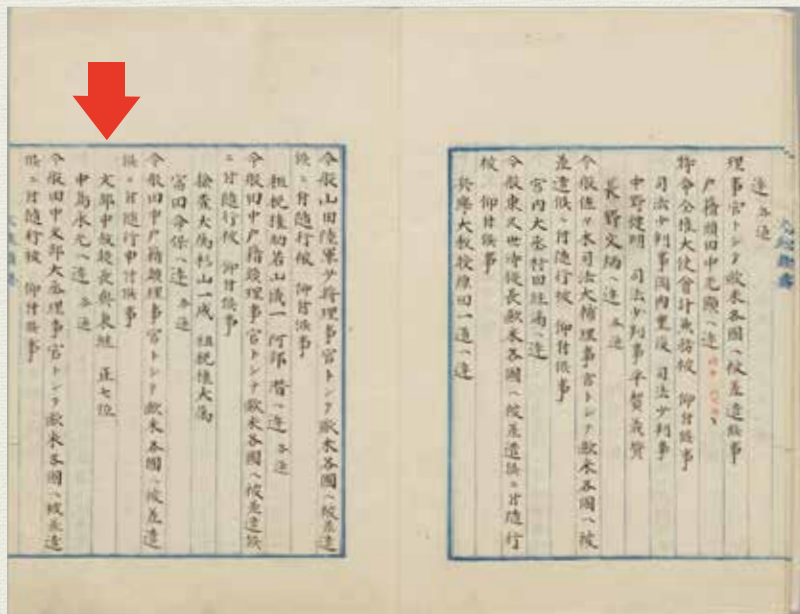 達 各通
理事官トシテ歐米各國ヘ被差遣候事
戸籍頭田中光顯ヘ達
特命全權大使會計兼務被 仰付候事
司法少判事岡内重俊 司法少判事
中野健明 司法少判事平賀義質
長野文炳ヘ達 各通
今般佐々木司法大輔理事官トシテ歐米各國ヘ被
差遣候ニ付隨行被 仰付候事
宮内大丞村田經滿ヘ達
今般東久世侍從長歐米各國ヘ被差遣候ニ付隨行
被 仰付候事
兵學大教授原田一道ヘ達
今般山田陸軍少將理事官トシテ歐米各國ヘ被差遣
候ニ付隨行被 仰付候事
租税權助若山儀一 阿部潜ヘ達 各通
今般田中戸籍頭理事官トシテ歐米各國ヘ被差遣候
ニ付隨行被 仰付候事
檢査大屬杉山一成 租税權大屬
富田命保ヘ達 各通
今般田中戸籍頭理事官トシテ歐米各國ヘ被差遣
候ニ付隨行申付候事
文部中教授長與秉繼 正七位
中島永元ヘ達 各通
今般田中文部大丞理事官トシテ歐米各國ヘ被差遣
候ニ付隨行被 仰付候事